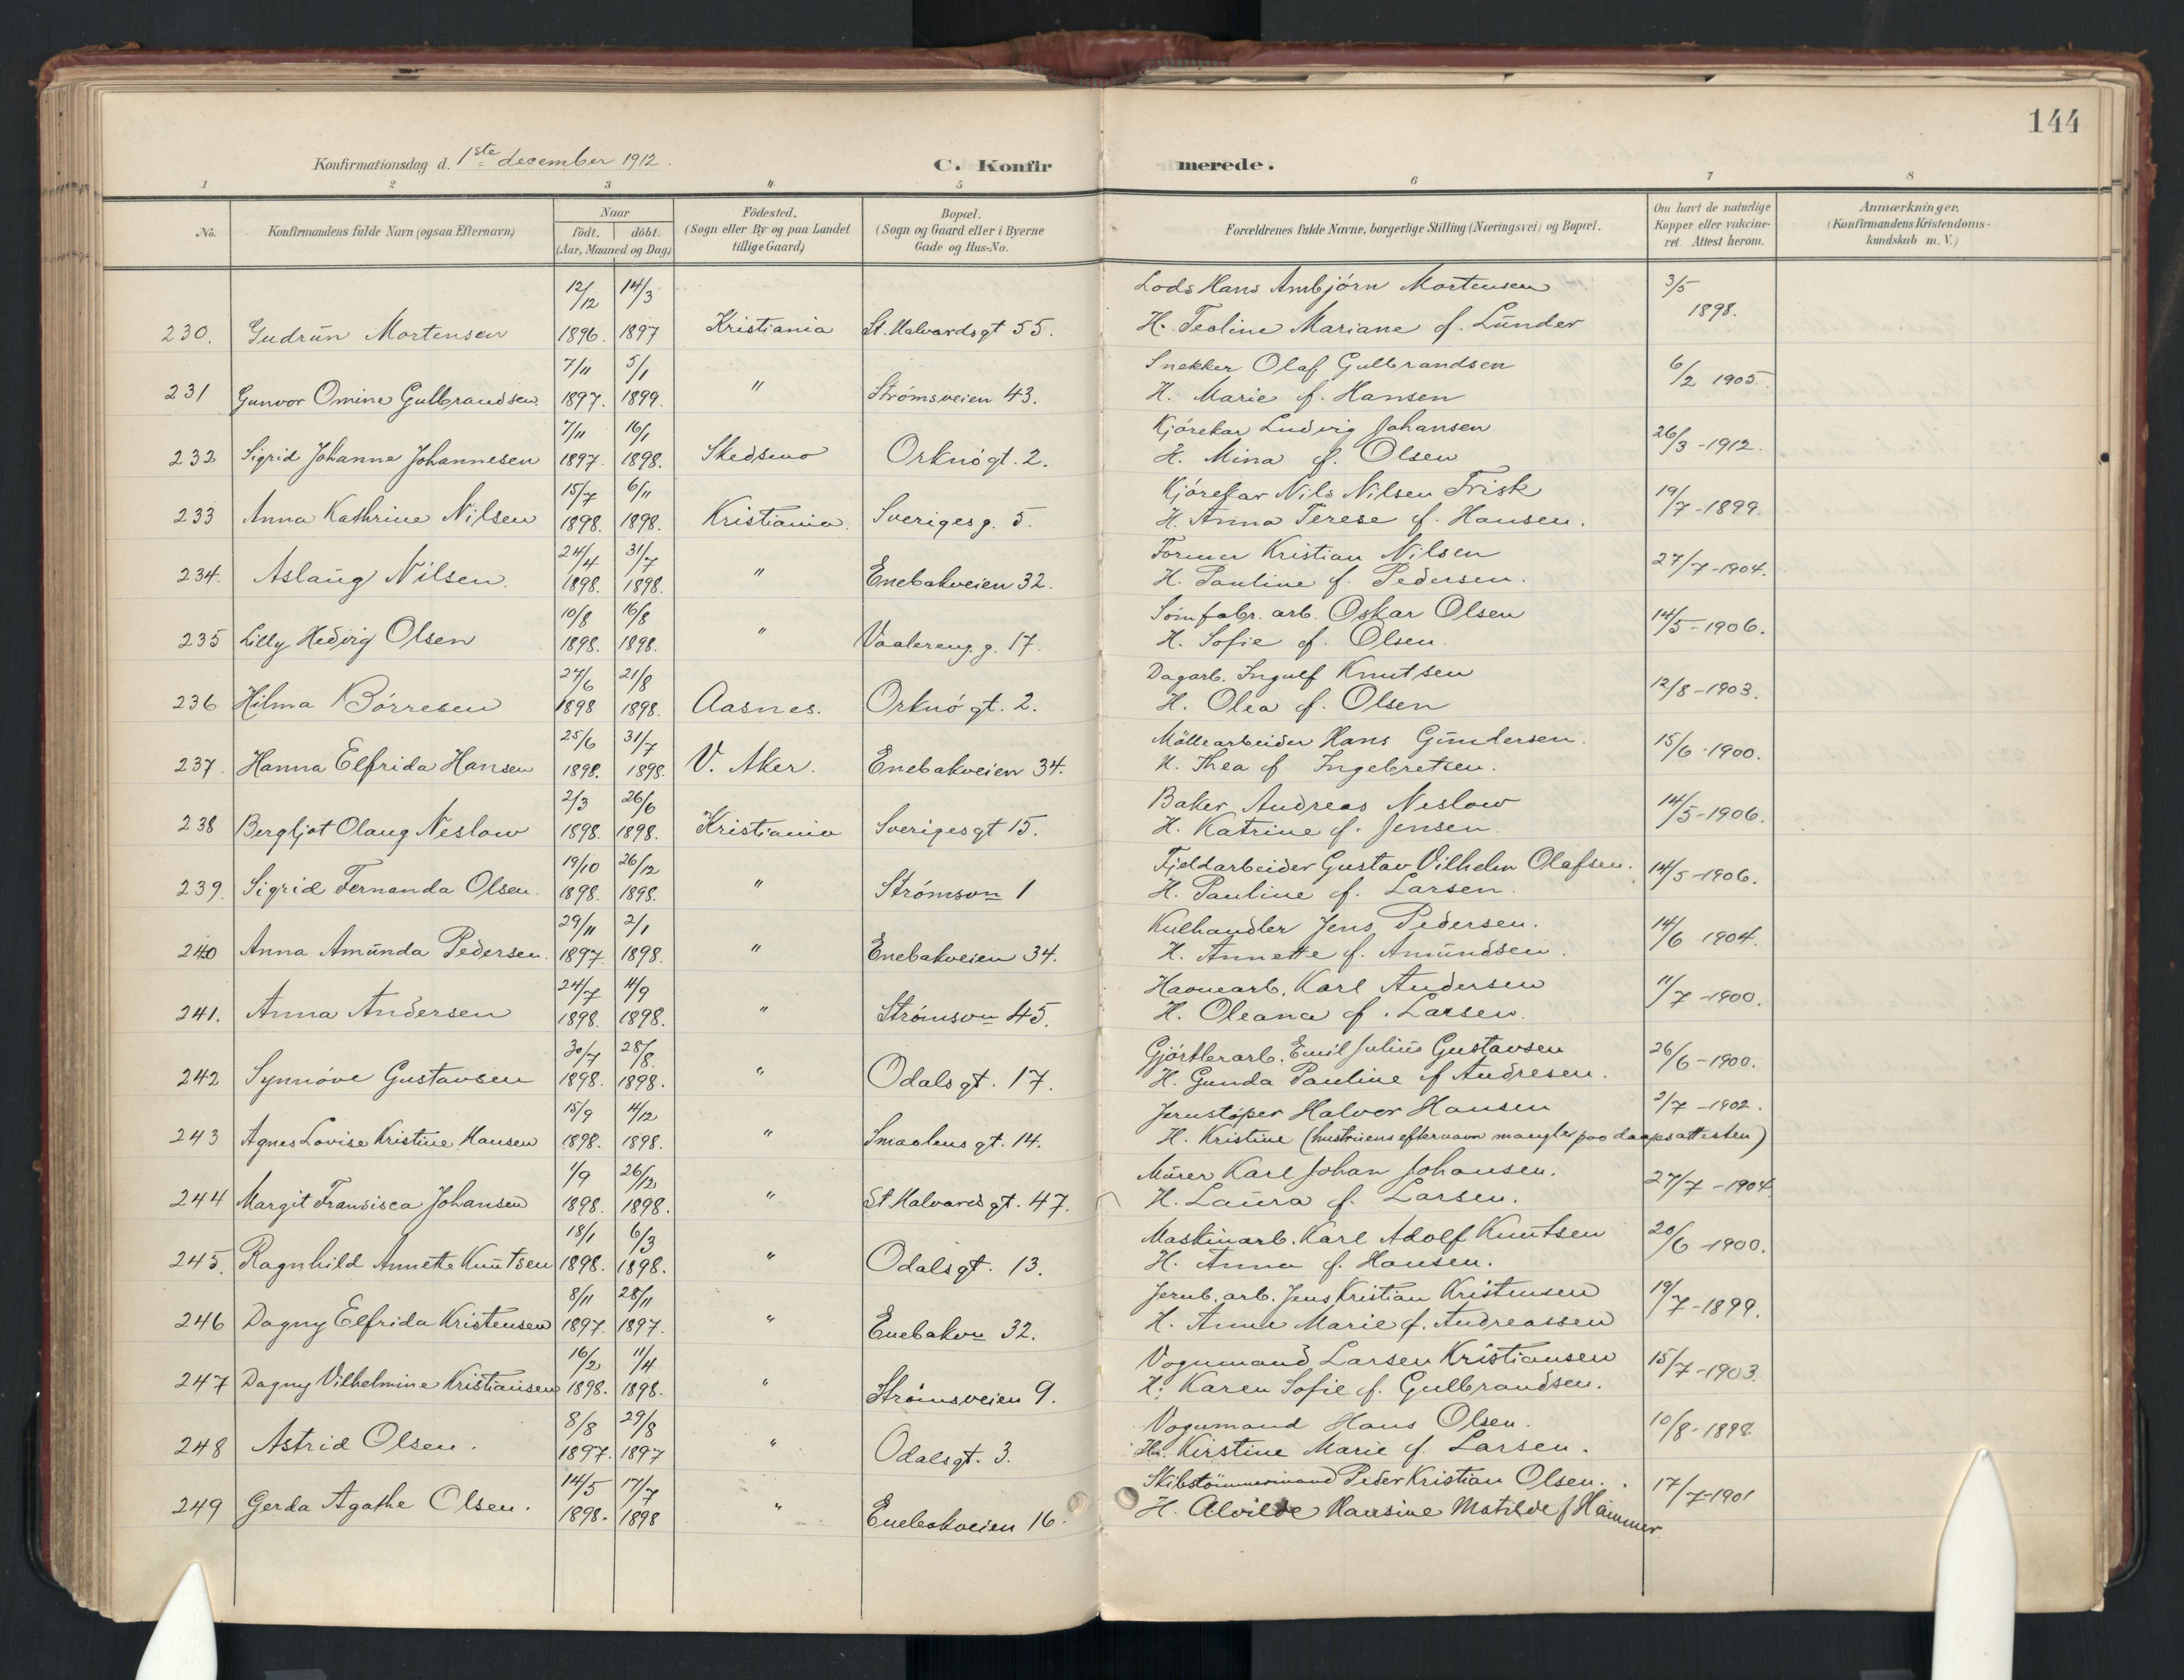 144
Konfirmationsdag d. 1ste december 1912.
C. Konfirmerede.
1 2 3 4 5 6 7 8
No. | Konfirmandens fulde Navn (ogsaa Efternavn) | Naar födt. döbt. (Aar, Maaned og Dag) | Födested. (Sogn eller By og paa Landet tillige Gaard) | Bopæl. (Sogn og Gaard eller i Byerne Gade og Hus-No. | Forældrenes fulde Navne, borgerlige Stilling (Næringsvei) og Bopæl. | Om havt de naturlige Kopper eller vakcineret. Attest herom. | Anmærkninger, (Konfirmandens Kristendomskundskab m. V.)
12/12 14/3 Lods Hans Ambjörn Mortensen 3/5
230. Gudrun Mortensen 1896. 1897 Kristiania St. Halvardsgt 55. H. Teoline Mariane f. Lunder 1898.
7/11 5/1 Snekker Olaf Gulbrandsen 6/2 1905.
231 Gunvor Omine Gulbrandsen 1897. 1899. " Strömsveien 43. H. Marie f. Hansen
7/11 16/1 Kjörekar Ludvig Johansen 26/3-1912.
232 Sigrid Johanne Johannesen 1897. 1898. Skedsmo Orknögt. 2. H. Mina f. Olsen
15/7 6/11 Kjörekar Nils Nilsen Frisk 19/7-1899.
233 Anna Kathrine Nilsen 1898. 1898. Kristiania. Sverigesg. 5. H. Anna Terese f. Hansen.
24/4 31/7 Former Kristian Nilsen 27/7-1904.
234. Aslaug Nilsen. 1898. 1898. " Enebakveien 32. H. Pauline f. Pedersen.
10/8 16/8 Sömfabr. arb. Oskar Olsen 14/5-1906.
235 Lilly Hedvig Olsen 1898. 1898. " Vaalereng.g. 17. H. Sofie f. Olsen.
27/6 21/8 Dagarb. Ingulf Knutsen 12/8-1903.
236 Hilma Börresen 1898 1898. Aasnes. Orknögt. 2. H. Olea f. Olsen
25/6 31/7 Möllearbeider Hans Gundersen. 15/6-1900.
237. Hanna Elfrida Hansen 1898. 1898. V. Aker. Enebakveien 34. H. Thea f Ingebretsen.
2/3 26/6 Baker Andreas Neslow 14/5-1906.
238 Bergljot Olaug Neslow 1898. 1898. Kristiania Sverigesgt 15. H. Katrine f. Jensen.
19/10 26/12 Fjeldarbeider Gustav Vilhelm Olafsen. 14/5-1906.
239. Sigrid Fernanda Olsen. 1898. 1898. " Strömsvn 1 H. Pauline f. Larsen.
29/11 2/1 Kulhandler Jens Pedersen. 14/6 1904.
240 Anna Amunda Pedersen. 1897. 1898. " Enebakveien 34. H. Annette f. Amundsen.
24/7 4/9 Havnearb. Karl Andersen 11/7-1900.
241. Anna Andersen 1898. 1898. " Strömsvn 45. H. Oleana f. Larsen.
30/7 28/8. Gjörtlerarb. Emil Julius Gustavsen 26/6-1900.
242 Synnöve Gustavsen 1898. 1898. " Odalsgt. 17. H. Gunda Pauline f Andresen.
15/9 4/12 Jernstöper Halvor Hansen 2/7-1902.
243 Agnes Lovise Kristine Hansen 1898. 1898. " Smaalensgt. 14. H. Kristine (hustruens efternavn mangler paa daapsattesten)
1/9 26/12 Murer Karl Johan Johansen. 27/7-1904
244 Margit Fransisca Johansen 1898. 1898. " St Halvardsgt. 47. H. Laura f. Larsen.
18/1 6/3 Maskinarb. Karl Adolf Knutsen 20/6-1900.
245. Ragnhild Annette Knutsen 1898. 1898. " Odalsgt. 13. H. Anna f. Hansen.
8/11 28/11 Jernb. arb. Jens Kristian Kristensen 19/7-1899.
246 Dagny Elfrida Kristensen 1897. 1897. " Enebakvn 32. H. Anne Marie f. Andreassen
16/2 11/4 Vognmand Larsen Kristiansen 15/7-1903.
247 Dagny Vilhelmine Kristiansen 1898. 1898. " Strömsveien 9. H. Karen Sofie f. Gulbrandsen.
8/8 29/8 Vognmand Hans Olsen. 10/8-1898
248 Astrid Olsen. 1897. 1897 " Odalsgt. 3. H. Kirstine Marie f. Larsen.
14/5 17/7 Skibstömmermand Peder Kristian Olsen. 17/7-1901
249 Gerda Agathe Olsen. 1898. 1898 " Enebakveien 16. H. Alvilde Hansine Matilde f Hammer.